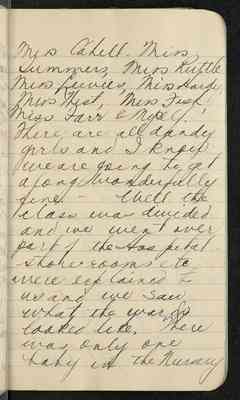 Miss Cahell. Miss
Summers, Miss Ruttle
Miss Miss
Miss West, Miss Fisk,
Miss Farr & Myself.
There are all dandy
girls and I know
we are going to get
along wonderfully
fine - Well the
class was divided
and we went over
part of the Hospital
store rooms etc
were explained to
us and we saw
what the wards
looked like. There
was only one
baby in the Nursery